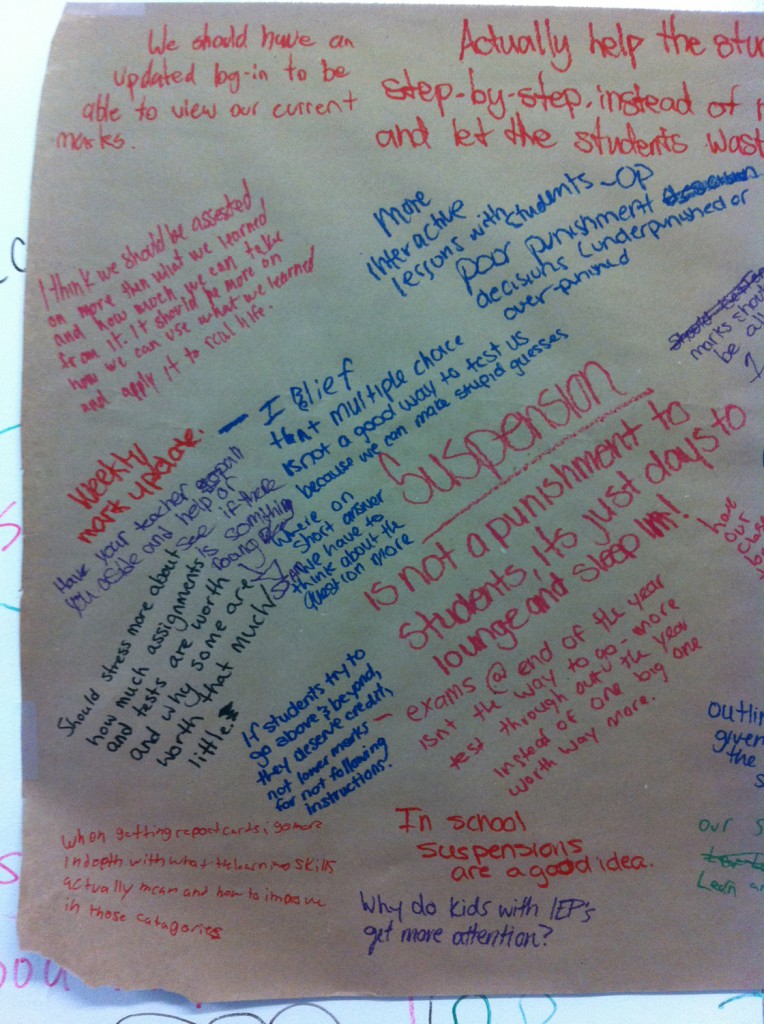 We should have an
updated log-in to be
able to view our current
marks.
Actually help the stu
step-by-step, instead of
and let the students wast
I think we should be assested
on more than what we learned
and how much we can take
from it. it should be more on
how we can use what we learned
and apply it to real life.
More
Interactive
lessons with students
-Op
poor punishment
decisions (underpunished or
over-punished
marks shou
be all
Weekly
mark update.
- I Blief
that multiple choice
is not a good way to test us
because we can make stupid guesses
where on
short answer
we have to
think about the
question more
Suspension
is not a punishment to
students, its just days to
lounge and sleep in!
Have your teacher
you aside and help or
see if there
is something
going
Should stress more about
how much assignments
and tests are worth
and why some are
worth that much/
little.
If students try to
go above & beyond,
they deserve credit,
not lower marks
for not following
instructions.
- exams @ end of the year
isn't the way to go - more
test through outv the year
instead of one big one
worth way more.
have
our
outlin
given
the
s
When getting report cards, go more
in depth with what the learning skills
actually mean and how to improve
in those catagories
In school
suspensions
are a good idea.
our s
Learn a
Why do kids with IEP's
get more attention?